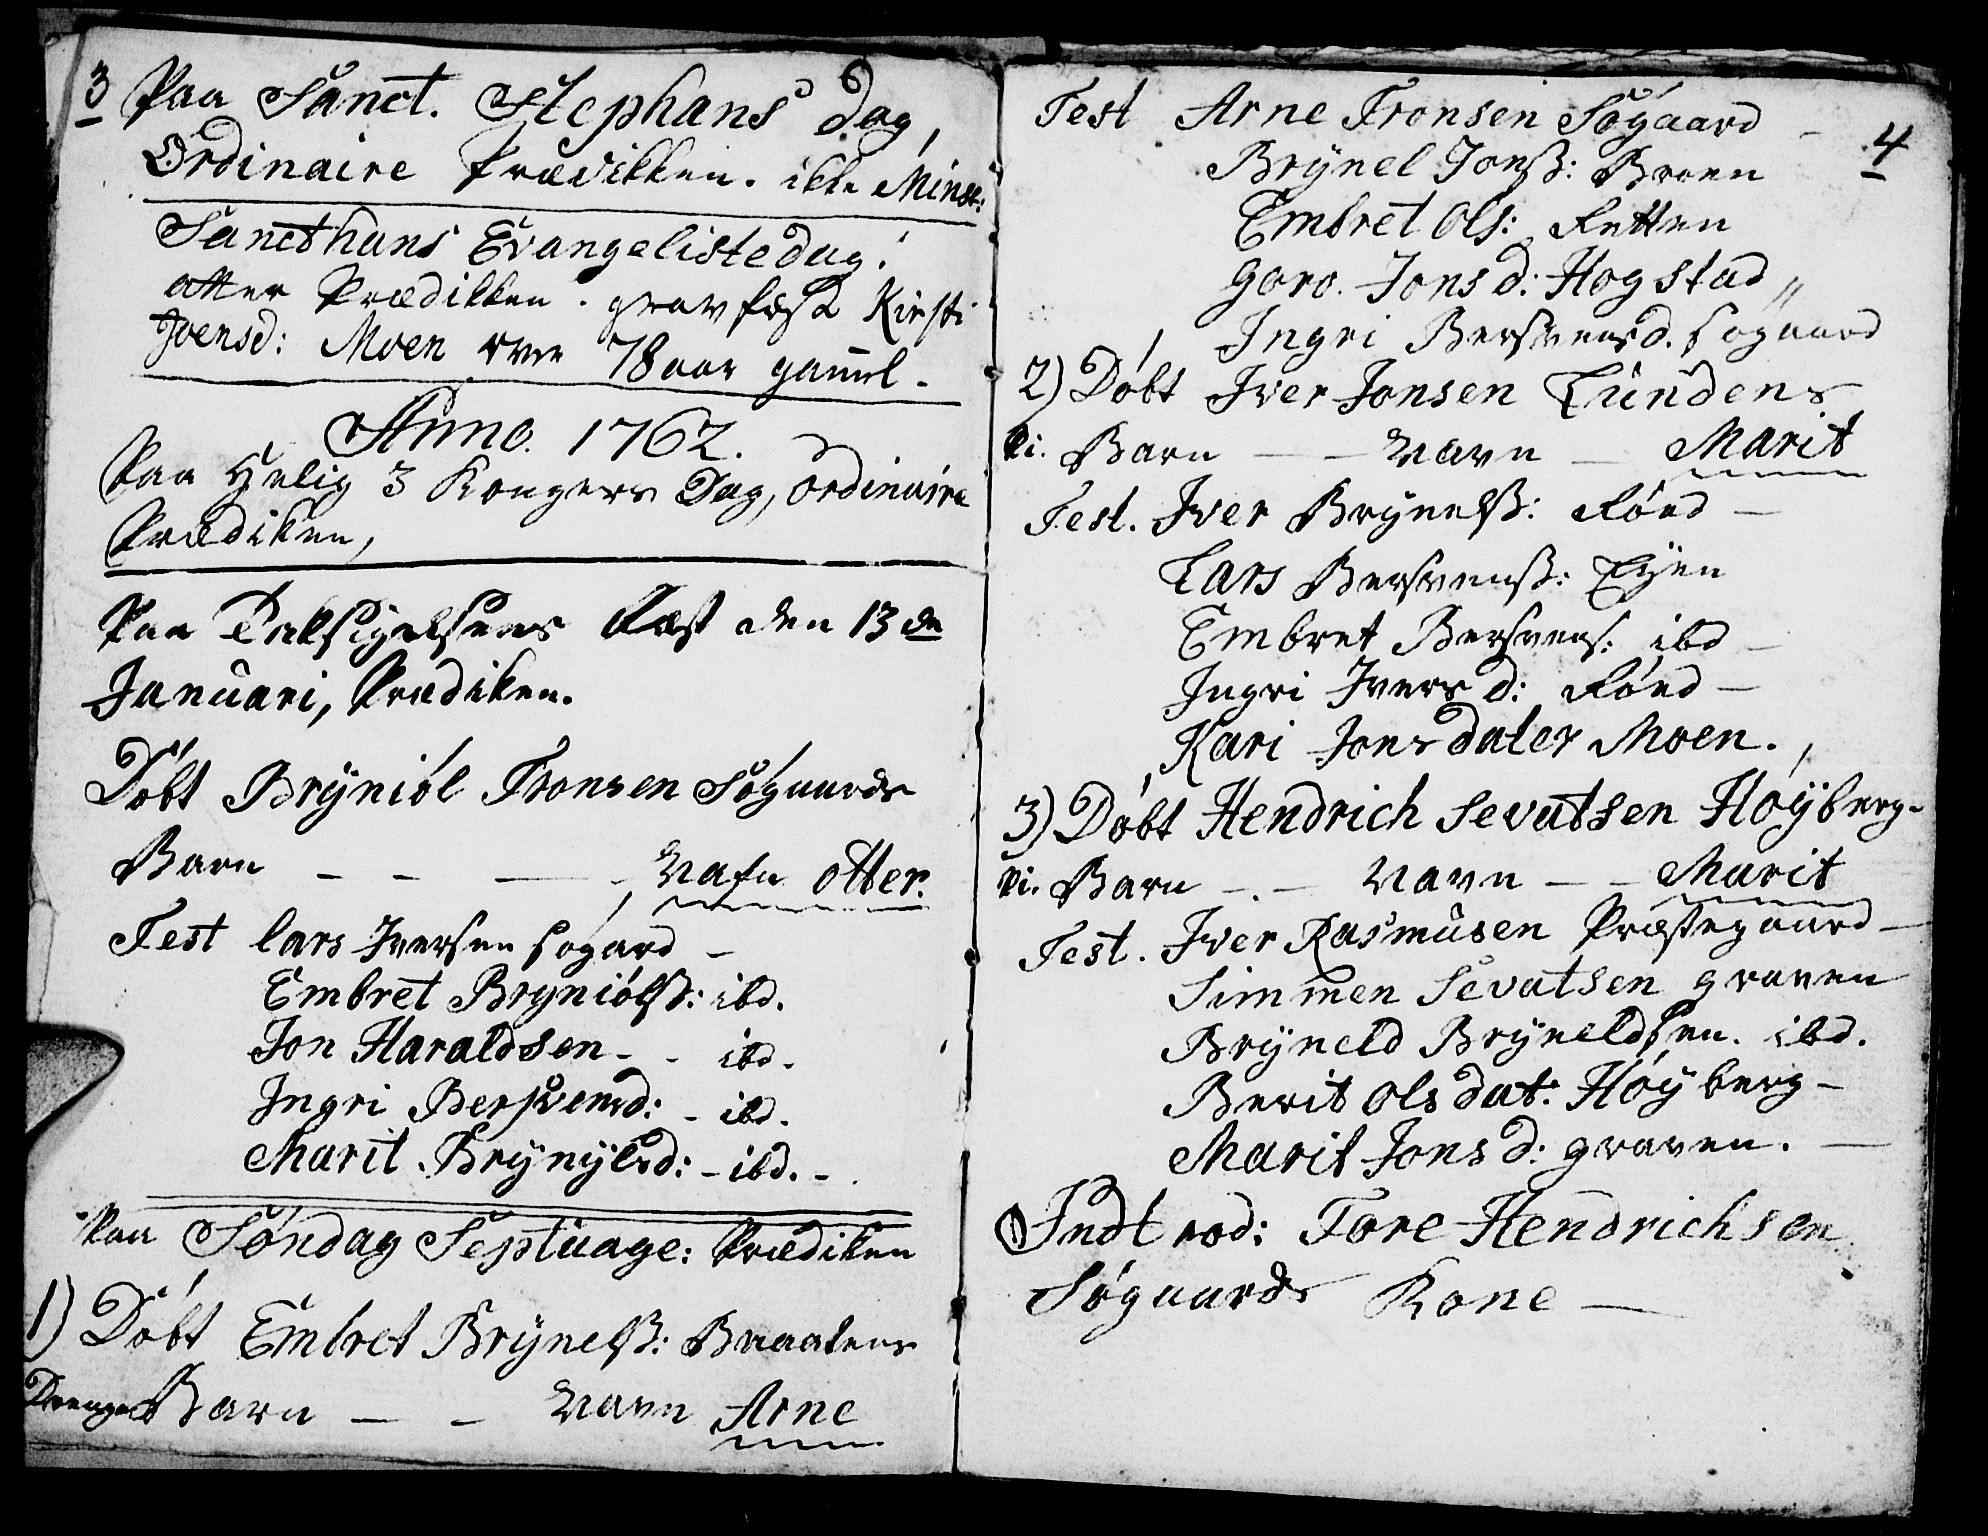 3 Paa Sanct. Stephans dag,
Ordinaire Prædikken. ikke Minst:
Sancthans Evangelistedag.
atter Prædikken. gravfæst Kirsti
Joensd: Moen over 78 aar gam̄el.
Anno. 1762.
Paa Helig 3 Kongers Dag, ordinaire
Prædiken,
Paa Taksigelsens Fæst den 13de
Januari, Prædiken.
Døbt Brÿniøl Tronsen Søgaards
Barn - - - - Nafn Otter.
Test Lars Iversen Søgard -
Embret Bryniólß: ibd.
Jon Haraldsen - - ibd.
Ingri Bersvensd: - ibd.
Marit Brÿnÿlsd: - ibd. -
Paa Søndag Septuage: Prædiken
1) Døbt Embret Brÿnelß: Braatens
Drenge Barn - - Navn Arne
4
Test Arne Tronsen Søgaard -
Brÿnel Jonß: Broen
Embret Ols: Retten
Goro. Jonsd: Hogstad
Ingri Bersvensd. Søgaard
2) Døbt Iver Jonsen Lundens
Pi. Barn - - Navn - Marit
Test. Iver Brÿnelß: Rønd -
Lars Bersvenß: Eÿen
Embret Bersvens: ibd -
Ingri Iversd: Rønd -
Kari Jonsdater Moen.
3) Døbt Hendrich Sevatsen Høÿberg-
Pi. Barn - - Navn - - Marit
Test. Iver Rasmusen Præstegaard -
Simmen Sevatsen graven
Brÿneld Brÿneldsen. ibd.
Berit Olsdat: Høÿberg -
Marit Jonsd: graven. -
Indtrod: Tore Hendrichsen
Søgaards Kone -